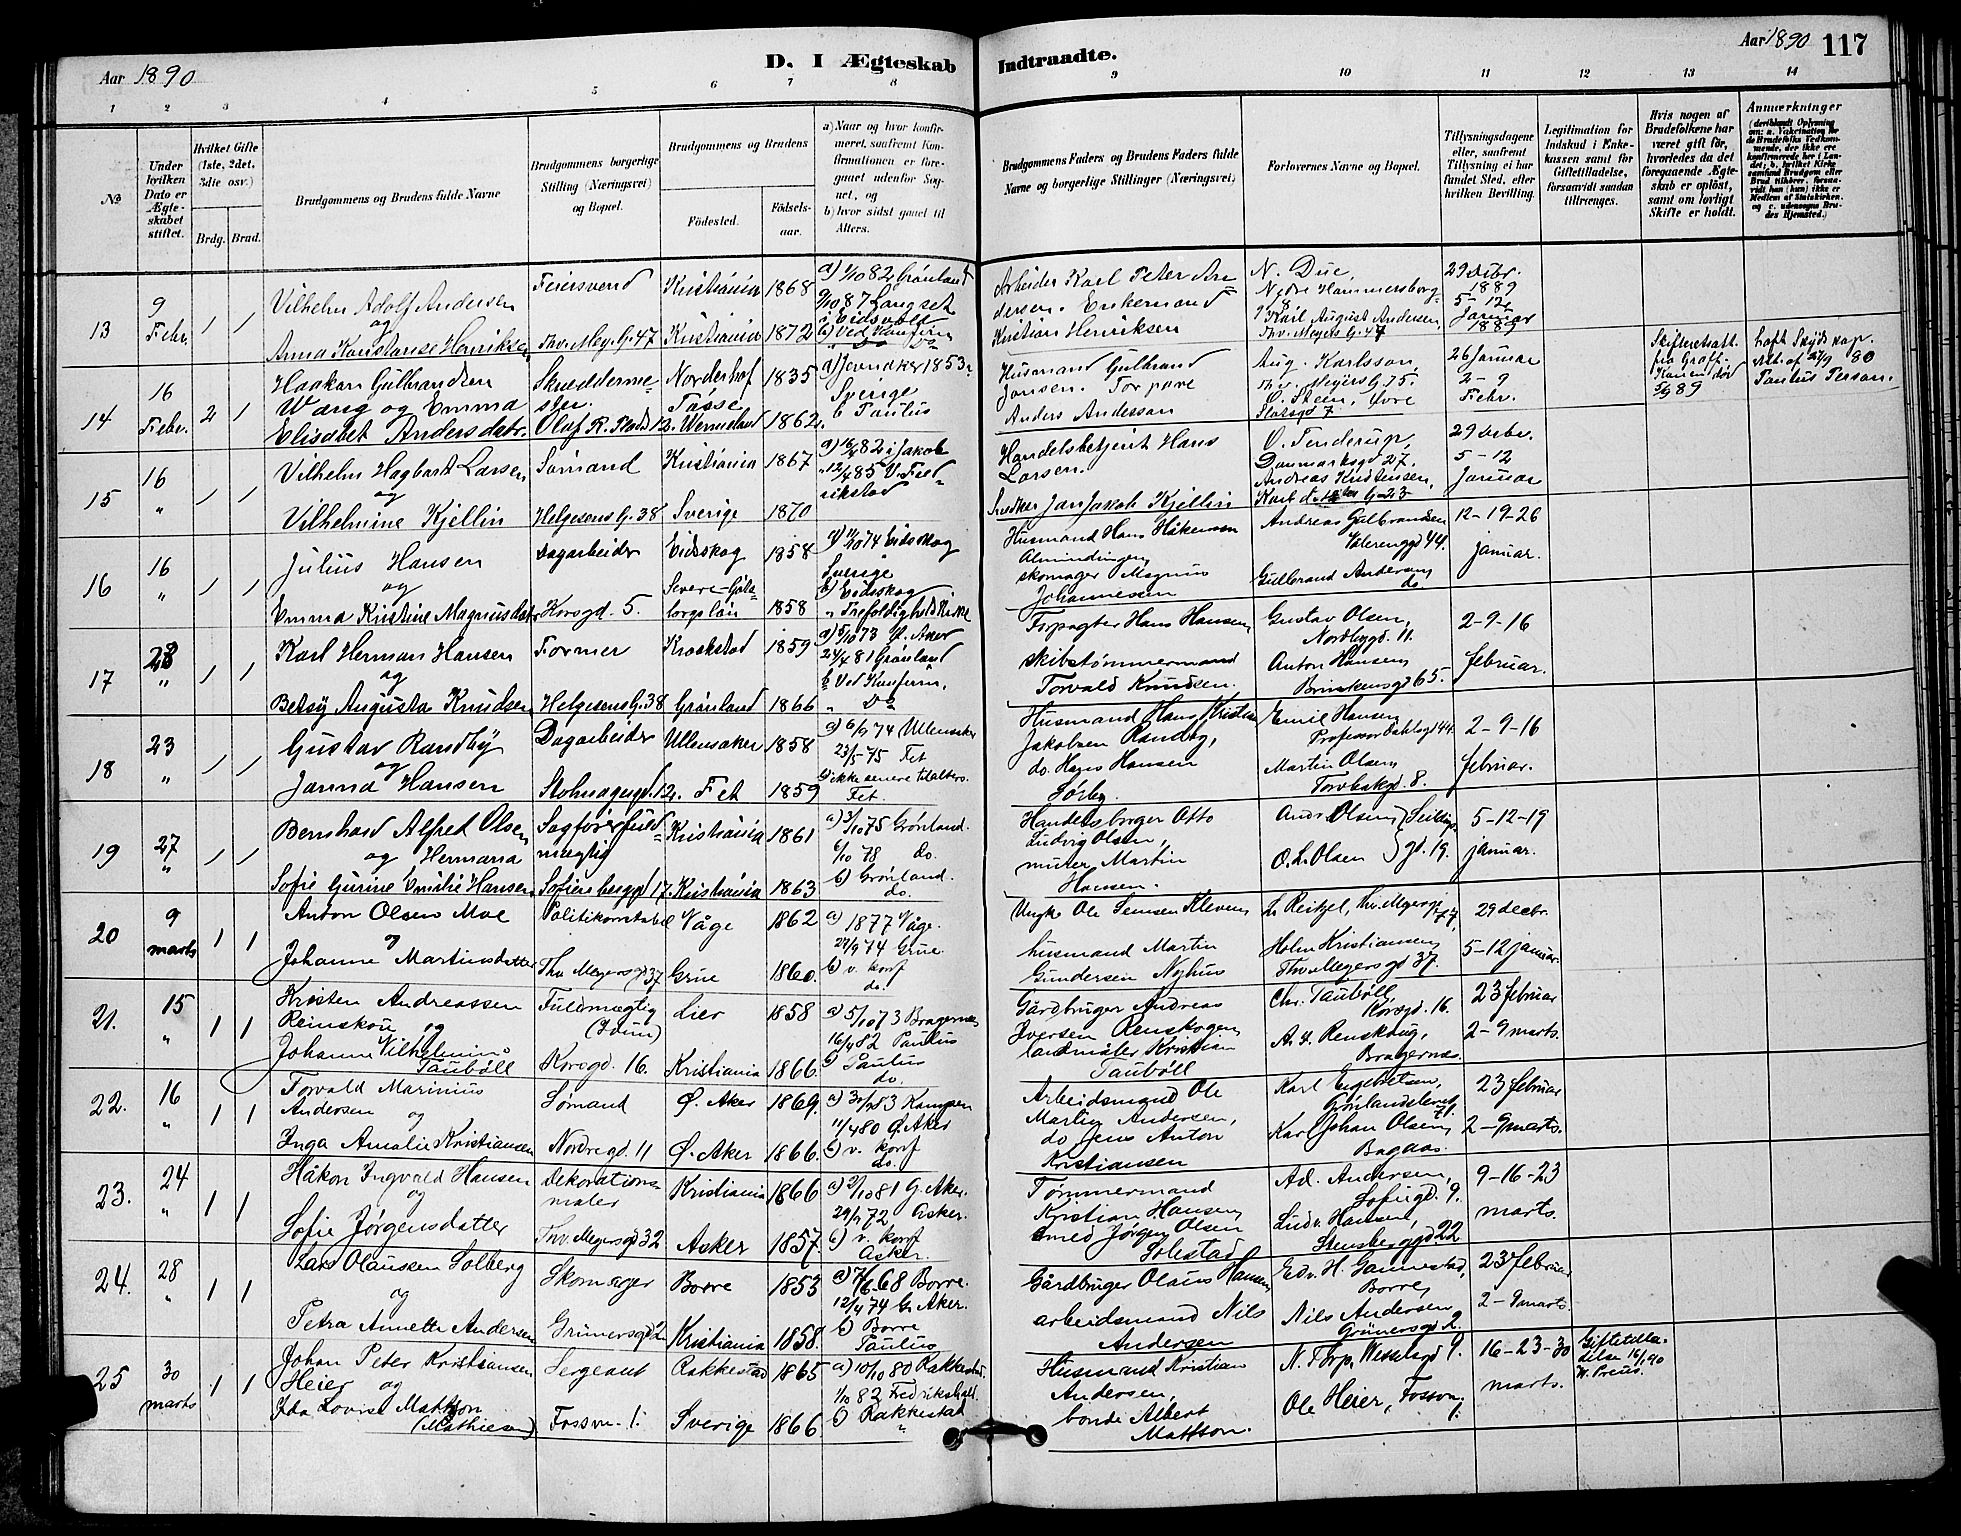 Aar 1890
D. I Ægteskab
Indtraadte.
Aar 1890 117
1 2 3 4 5 6 7 8 9 10 11 12 13 14
No
Under hvilken Dato er Ægteskabet stiftet.
Hvilket Gifte (1ste, 2det, 3die osv.)
Brdg. Brud.
Brudgommens og Brudens fulde Navne
Brudgommens borgerlige Stilling (Næringsvei) og Bopæl.
Brudgommens og Brudens
Fødested.
Fødselsaar.
a) Naar og hvor konfirmeret, saafremt Konfirmationen er foregaaet udenfor Sognet, og
b) hvor sidst gaaet til Alters.
Brudgommens Faders og Brudens Faders fulde Navne og borgerlige Stillinger (Næringsvei)
Forlovernes Navne og Bopæl.
Tillysningsdagene eller, saafremt Tillysning ei har fundet Sted, efter hvilken Bevilling.
Legitimation for Indskud i Enkekassen samt for Giftetilladelse, forsaavidt saadan tiltrænges.
Hvis nogen af Brudefolkene har været gift før, hvorledes da det foregaaende Ægteskab er opløst, samt om lovligt Skifte er holdt.
Anmærkninger
13 9 Febr. 1 1
Vilhelm Adolf Andersen
og
Anna Konstanse Henriksen
Feiersvend
Thv. Mey. G. 47
Kristiania 1868
Kristiania 1872
a) 1/10 82 Grönland
9/10 87 Langset
i Eidsvold
b) Ved Konfirm
Do
Arbeider Karl Peter Andersen. Enkemand
Kristian Henriksen
N. Due,
Nedre Hammersborg
Karl August Andersen,
Thv. Meyers G. 47
29 decbr. 1889
5-12
Januar
1889
14 16 Febr. 2 1
Haakon Gulbrandsen
Wang og Emma
Elisabet Andersdatr.
Skræddermester.
Olaf R. Plads 12.
Norderhof 1835
Fosse
Wermeland 1862
a) Jevnaker 1853
Sverige
b Paulus
Husmand Gulbrand
Jonsen. Torpare
Anders Andersson
Aug. Karlsson,
Thv. Meyers G. 75.
O. Steen, Övre
Slotsgd 7
26 Januar
2-9
Febr.
Skifteretsatt.
fra
Konen död
5/9 89
80
Paulus Person.
15 16 " 1 1
Vilhelm Hagbart Larsen
og
Vilhelmine Kjellin
Sømand
Helgesens G. 38
Kristiania 1867
Sverige 1870
82 i Jakob
12/4 85 V. Fredrikstad
Handelsbetjent Hans
Larsen.
Snedker Jan Jakob Kjellin
O. Tenderup,
Danmarksgd 27.
Andreas Kristensen,
Karl d. 12tes G. 23
29 decbr.
5-12
Januar
16 16 " 1 1
Julius Hansen
og
Emma Kristine Magnusdatr
Dagarbeider
Korsgd. 5.
Eidskog 1858
Sverre-Göteborgslän 1858
a) 11/10 74 Eidskog
Sverige
b) Eidskog
" Trefoldigheds Kirke
Husmand Hans Håkensen
Almindingen
skomager Magnus
Johannesen
Andreas Gulbrandsen
Vålerenggd 44.
Gulbrand Andersen
do
12-19-26
januar.
17 23 " 1 1
Karl Herman Hansen
og
Betsy Augusta Knudsen
Former
Helgesens G. 38
Krokstad 1859
Grönland 1866
a) 5/10 73 V. Aker
24/4 81 Grönland
b Ved Konfirm.
" Do
Forpagter Hans Hansen
skibstømmermand
Torvald Knudsen.
Gustav Olsen,
Nordbygd. 11.
Anton Hansen
Brinkensgd 65.
2-9-16
februar.
18 23 " 1 1
Gustav Randby
og
Janna Hansen
Dagarbeider
Stolmagergd. 12.
Ullensaker 1858
Fet 1859
a) 6/9 74 Ullensaker
23/5 75 Fet
b) ikke senere tilalters.
Fet.
Husmand Hans Kristian
Jakobsen Randby,
do. Hans Hansen
Sörby.
Emil Hansen
Professor Dahlsgd 44.
Martin Olsen
Torvbakgd. 8.
2-9-16
februar.
19 27 " 1 1
Bernhard Alfred Olsen
og Hermana
Sofie Gurine Emilie Hansen
Sagførerfuldmægtig
Sofienberggd 17.
Kristiania 1861
Kristiania 1863
a) 3/10 75 Grönland.
6/10 78 do.
b) Grönland.
do.
Handelsborger Otto
Ludvig Olsen,
murer Martin
Hansen.
Ands Olsen } Seildugsgd. 19.
O. L. Olsen
5-12-19
januar.
20 9 marts 1 1
Anton Olsen Moe
og
Johanne Martinsdatter
Politikonstabel
Thv. Meyersgd 37
Våge 1862
Grue 1860.
a) 1877 Våge.
27/9 74 Grue.
b) v. konf
do.
Ungk. Ole Klevem
husmand Martin
Gundersen Nyhus
L. Reitzel, Thv. Meyersgt 77.
Holm Kristiansen
Thv. Meyersgd 37.
29 decbr.
5-12 januar.
21. 15 " 1 1
Kristen Andreassen
Reinskou og
Johanne Vilhelmine
Taubøll
Fuldmægtig
(Idun)
Korsgd. 16.
Lier 1858
Kristiania 1866.
a) 5/10 73 Bragernæs
16/4 82 Paulus
b) Paulus
do.
Gårdbruger Andreas
Iversen Renskogen
landmåler Kristian
Taubøll
Chr. Taubøll,
Korsgd. 16.
A. I. Renskoug,
Bragernæs.
23 februar
2-9 marts.
22. 16 " 1 1
Torvald Marinius
Andersen og
Inga Amalie Kristiansen
Sømand
Nordregd. 11
Ø. Aker 1869.
Ø. Aker 1866.
83 Kampen
11/4 80 Ø. Aker
b) v. konf
do.
Arbeidsmand Ole
Martin Andersen,
do Jens Anton
Kristiansen
Karl Engebretsen,
Grönlandsleret 71.
Karl Johan Olsen
Bogaas.
23 februar
2-9 marts.
23. 24 " 1 1
Håkon Ingvald Hansen
og
Sofie Jørgensdatter
Dekorationsmaler
Thv. Meyersgd 32
Kristiania 1866
Asker 1857.
a) 2/10 81 G. Aker.
29/9 72 Asker.
b) v. konf
Asker.
Tømmermand
Kristian Hansen
smed Jørgen Olsen
Solestad
Ad. Andersen,
Sofiegd. 9.
Ludv. Hansen,
Stensberggd. 22
9-16-23
marts.
24. 28 " 1 1
Lars Olausen Solberg
og
Petra Annette Andersen
Skomager
Grünersgd 2
Borre 1853
Kristiania 1858.
a) 7/6 68 Borre.
12/4 74 G. Aker.
b) Borre
Paulus
Gårdbruger Olaus Hansen
arbeidsmand Nils
Andersen
Edv. H. Gannestad,
Borre,
Nils Andersen
Grünersgd 2.
23 februar
2-9 marts.
25 30 marts 1 1
Johan Peter Kristiansen
Heier og
Ida Lovise Mattson
(Mathiesen)
Sergeant
Fossvn. 1.
Rakkestad 1865
Sverige 1866
a) 10/10 80 Rakkestad.
1/10 82 Fredrikshald.
b) Rakkestad
"
Husmand Kristian
Andersen,
bonde Albert
Mattson.
N. Thorp, Wesselsgd 9.
Ole Heier, Fossvn. 1.
16-23-30
marts.
Giftetilladelse 16/1 90
W. Preus.